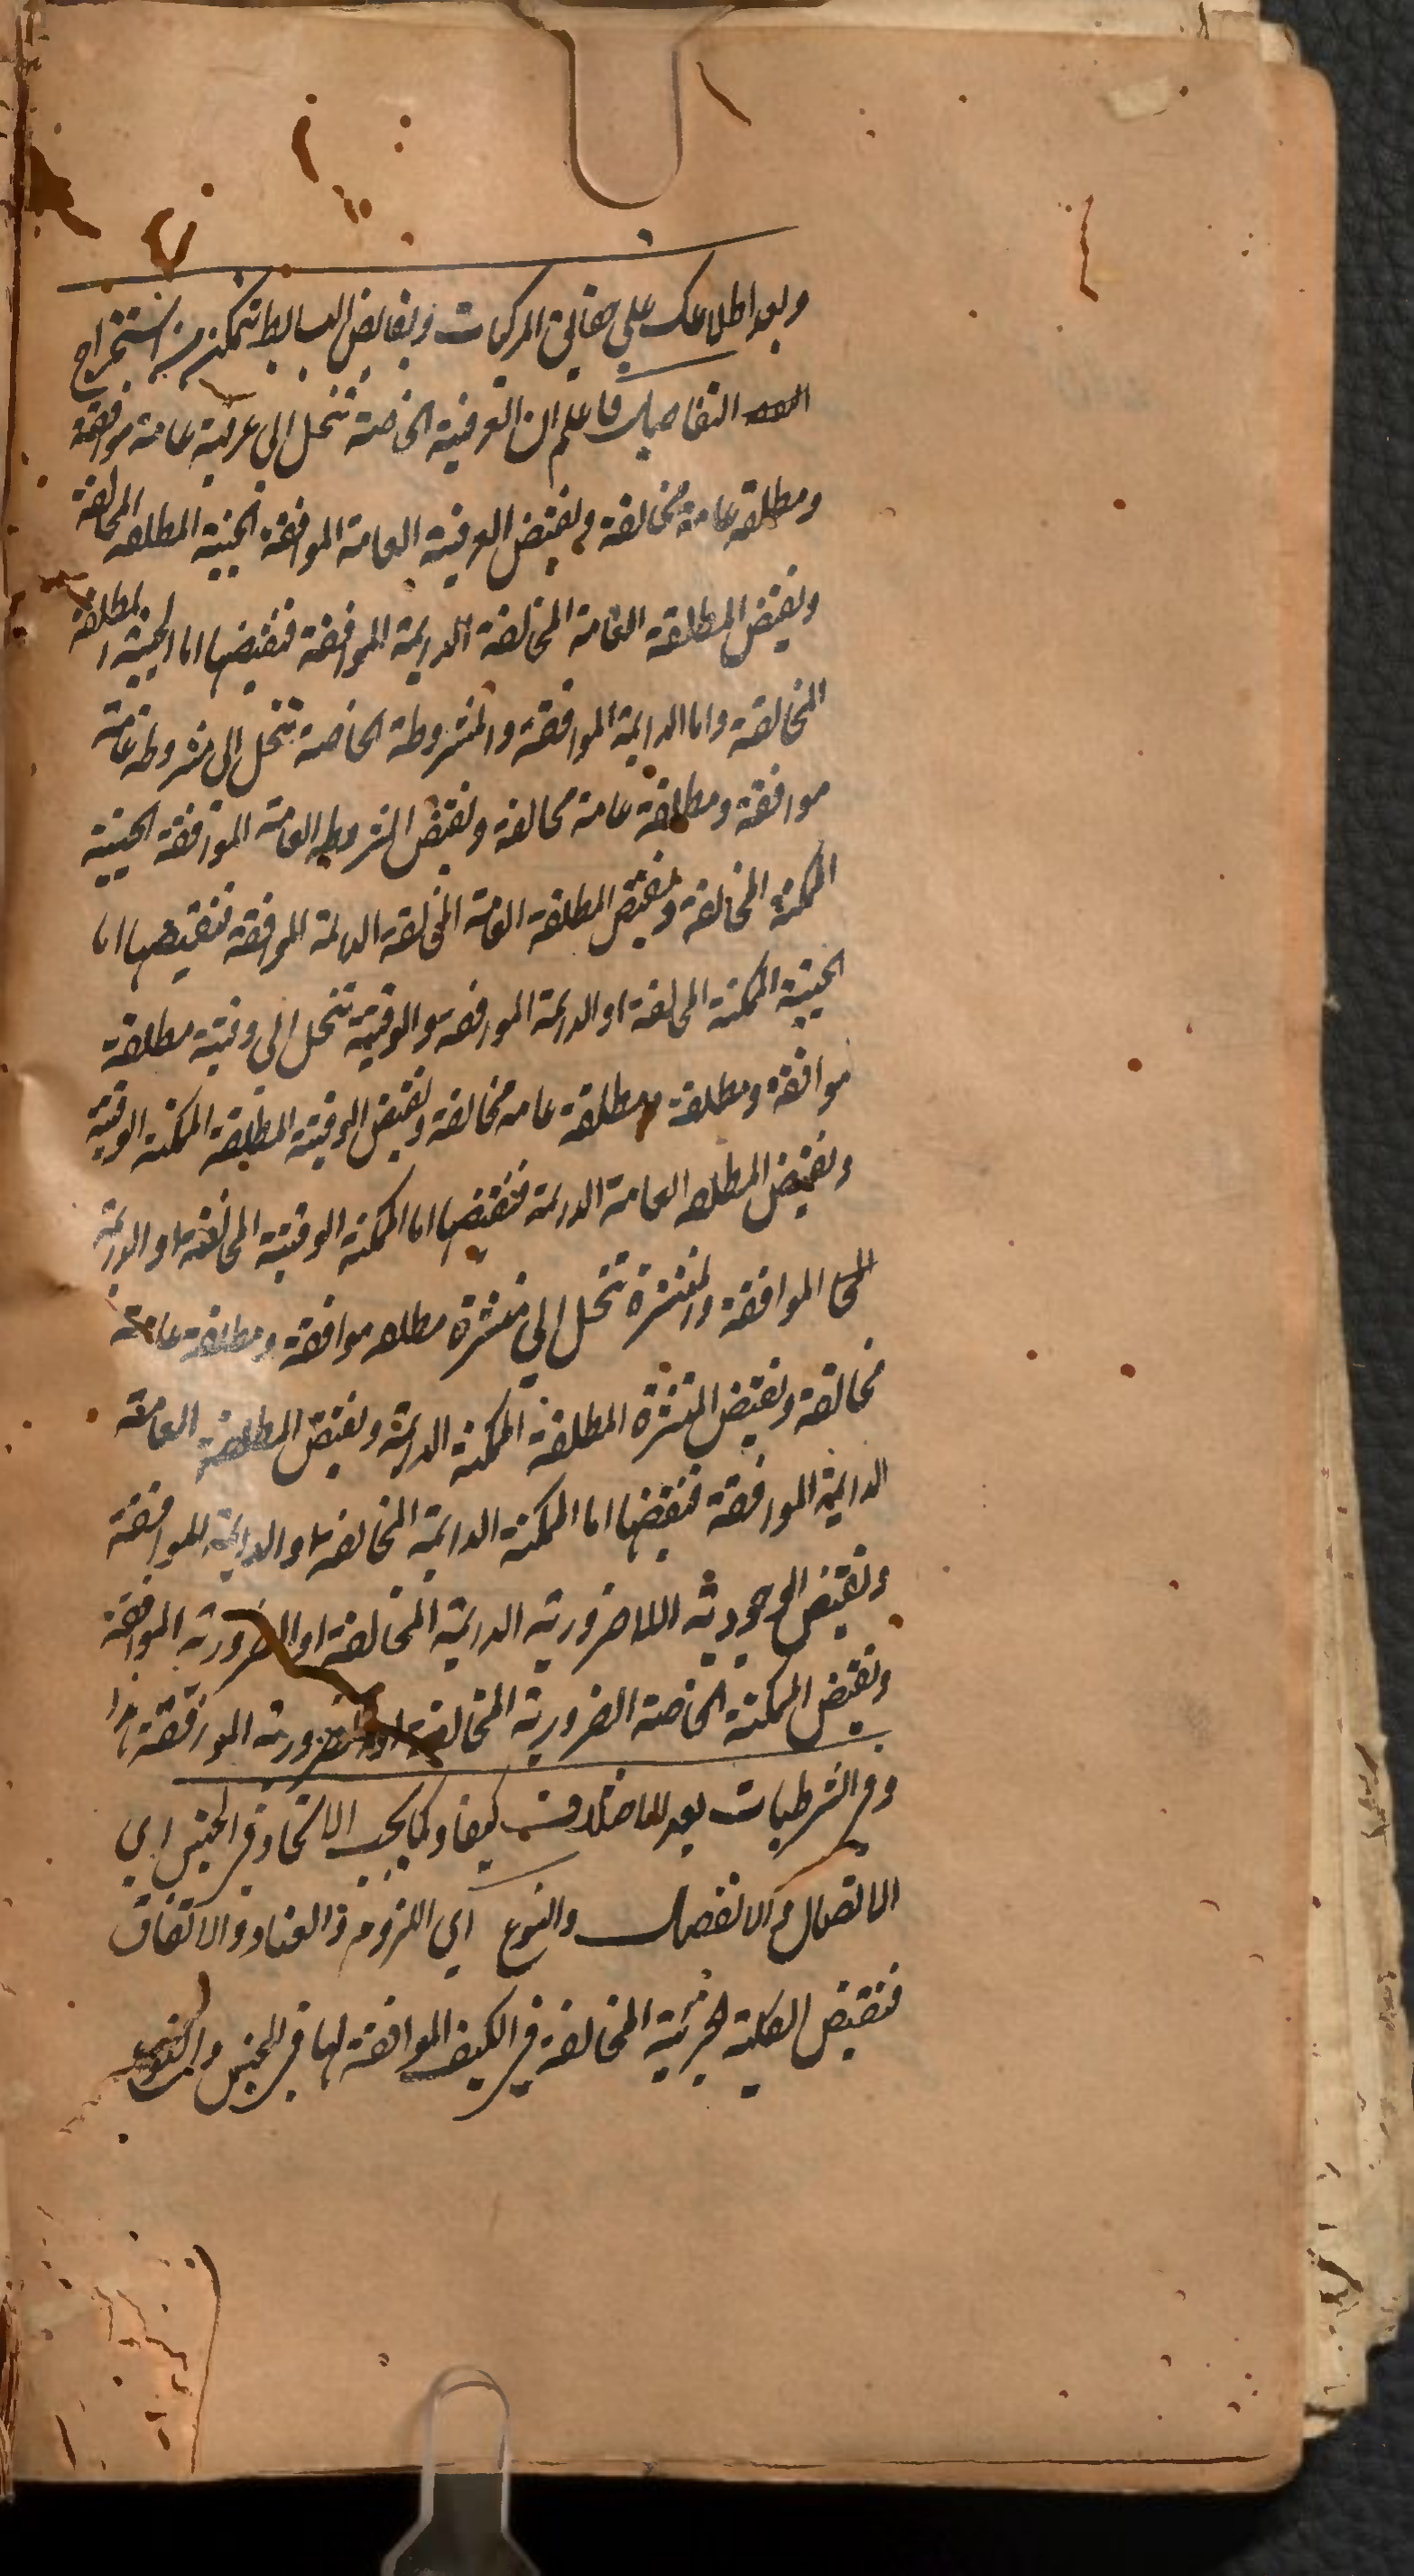 وبعد اطلاعك على حقايق المركبات ونقايض البسايط تتمكن من استخراج
التفاصيل فاعلم ان العرفية الخاصة تنحل الى عرفية عامة موافقة
ومطلقة عامة مخالفة ونقيض العرفية العامة الموافقة الحينية المطلقه المخالفة
ونقيض المطلقة العامة المخالفة الدايمة الموافقة فنقيضها اما الحينية المطلقة
المخالفة واما الدايمة الموافقة والمشروطة الخاصة تنحل الى مشروطة عامة
موافقة ومطلقة عامة مخالفة ونقيض المشروطه العامة الموافقة الحينية
الممكنة المخالفة ونقيض المطلقة العامة المخالفة الدايمة الموافقة فنقيضها اما
الحينية الممكنة المخالفة او الدايمة الموافقة والوقتية تنحل الى وقتية مطلقة
موافقة ومطلقة ومطلقة عامه مخالفة ونقيض الوقتية المطلقة الممكنة الوقتية
ونقيض المطلقه العامة الدايمة فنقيضها اما الممكنة الوقتية المخالفة او الدايمة
الموافقة والمنتشرة تنحل الى منتشرة مطلقه موافقة ومطلقة عامة
مخالفة ونقيض المنتشرة المطلقة الممكنة الدايمة ونقيض المطلقة العامة
الدايمة الموافقة فنقيضها اما الممكنة الدايمة المخالفة او الدايمة الموافقة
ونقيض الوجودية اللاضرورية الدايمة المخالفة او الضرورية الموافقة
ونقيض الممكنة الخاصة الضرورية المخالفة او الضرورية الموافقة هذا
وفى الشرطيات بعد الاختلاف كيفا وكما يجب الاتحاد فى الجنس اي
الاتصال والانفصال والنوع اي اللزوم والعناد والاتفاق
فنقيض الكلية الجزئية المخالفة في الكيف الموافقة لها فى الجنس والنوع